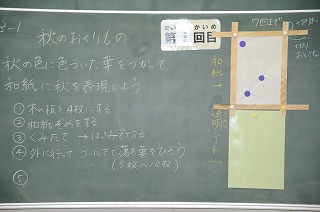 3-1
秋のおくりもの
秋の色に色づいた葉をつかって
和紙に秋を表現しよう
① 木の枝を4枚にする
② 和紙をそめをする
③ くみたて → はさみで切る
④ 外に行って ゴールまで落ち葉をひろう
(5枚〜10枚)
⑤
だい かいめ
第 回目
7回まで
和紙→
透明シート→